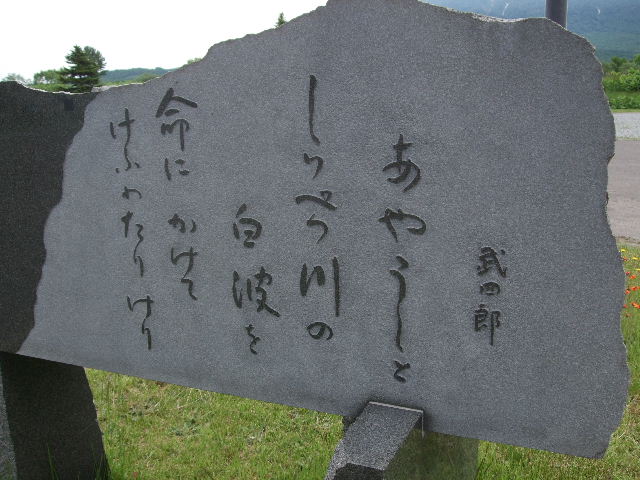 武四郎
あやうしと
しりべつ川の
白波を
命にかけて
けふわたりけり